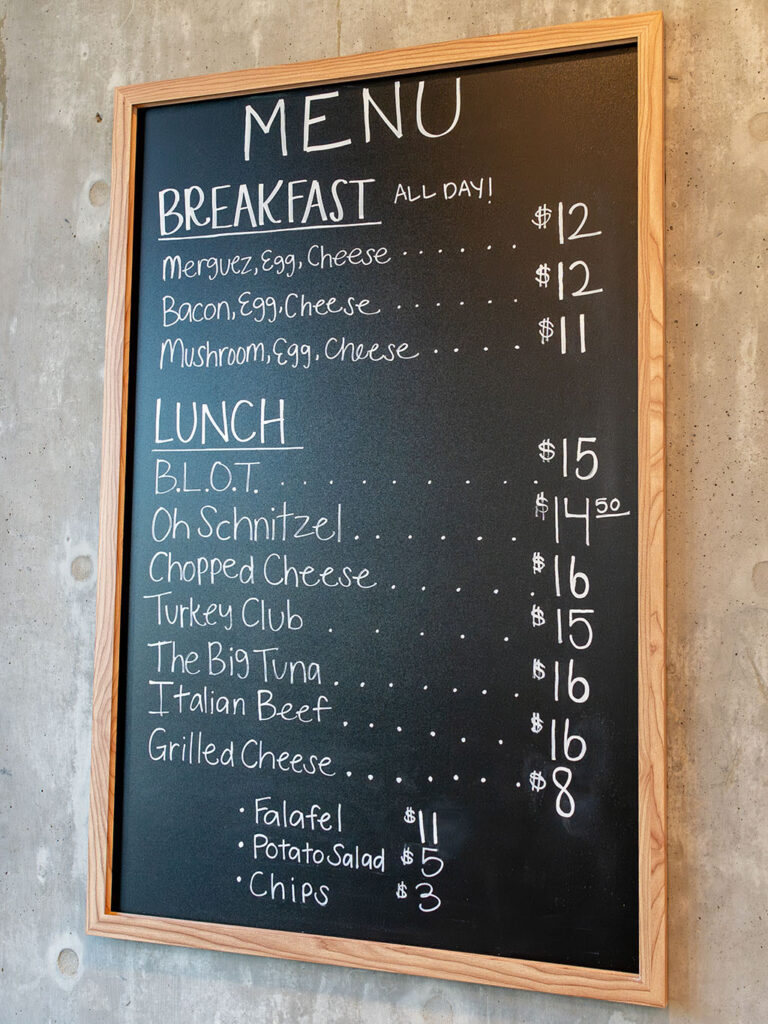 MENU
BREAKFAST ALL DAY!
Merguez, Egg, Cheese . . . . . . $12
Bacon, Egg, Cheese . . . . . . $12
Mushroom, Egg, Cheese . . . . $11
LUNCH
B.L.O.T. . . . . . . . . . $15
Oh Schnitzel . . . . . . $14 50
Chopped Cheese . . . . . $16
Turkey Club . . . . . $15
The Big Tuna . . . . . . . $16
Italian Beef . . . . . . $16
Grilled Cheese . . . . . . . $8
• Falafel $11
• Potato Salad $5
• Chips $3